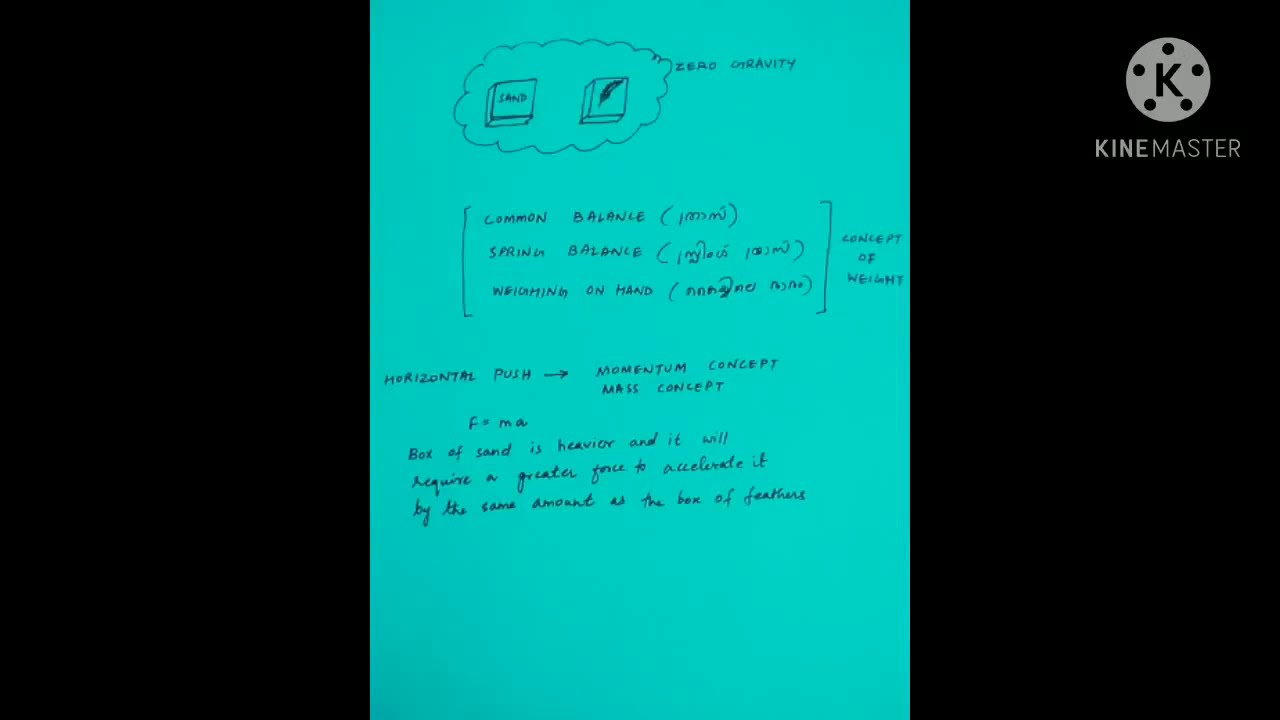 ZERO GRAVITY
SAND
COMMON BALANCE (ത്രാസ്)
SPRING BALANCE (സ്പ്രിംഗ് ത്രാസ്)
WEIGHING ON HAND
CONCEPT
OF
WEIGHT
HORIZONTAL PUSH → MOMENTUM CONCEPT
MASS CONCEPT
F = ma
Box of sand is heavier and it will
require a greater force to accelerate it
by the same amount as the box of feathers
K
KINEMASTER